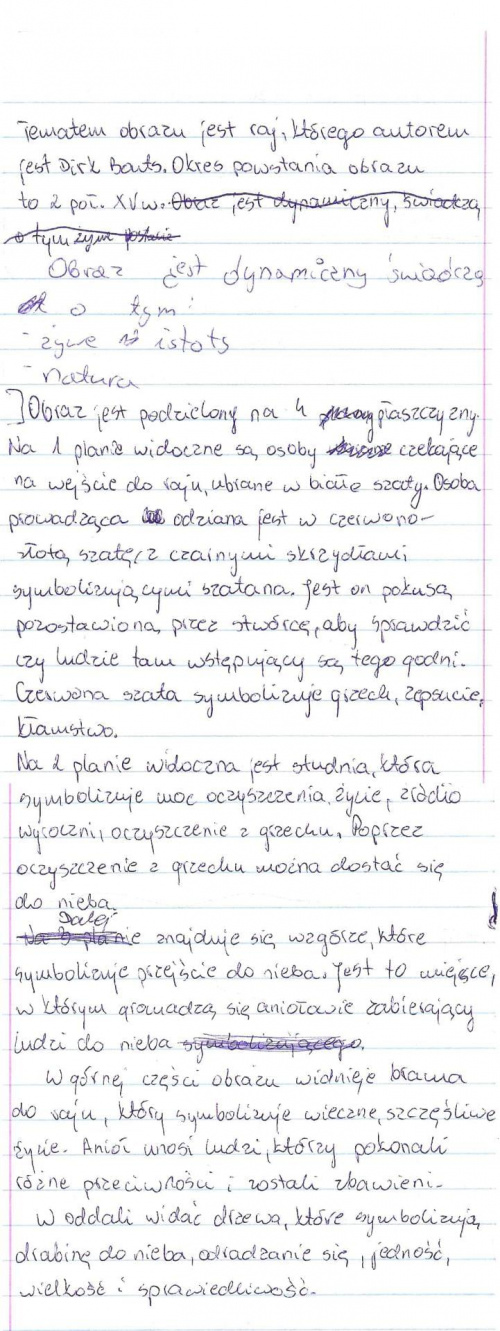 Tematem obrazu jest raj, którego autorem
jest Dirk Bouts. Okres powstania obrazu
to 2 poł. XVw. Obraz jest dynamiczny, świadczą
o tym żywe postacie
Obraz jest dynamiczny świadczą
o tym:
- żywe istoty
- natura
] Obraz jest podzielony na 4 płaszczyzny.
Na 1 planie widoczne są osoby czekające
na wejście do raju, ubrane w białe szaty. Osoba
prowadząca odziana jest w czerwono-
złotą szatę z czarnymi skrzydłami
symbolizującymi szatana. Jest on pokusą
pozostawioną przez stwórcę, aby sprawdzić
czy ludzie tam wstępujący są tego godni.
Czerwona szata symbolizuje grzech, zepsucie,
kłamstwo.
Na 2 planie widoczna jest studnia, która
symbolizuje moc oczyszczenia, życie, źródło
wyroczni, oczyszczenie z grzechu. Poprzez
oczyszczenie z grzechu można dostać się
do nieba.
Dalej
Na 3 planie znajduje się wzgórze, które
symbolizuje przejście do nieba. Jest to miejsce,
w którym gromadzą się aniołowie zabierający
ludzi do nieba symbolizującego.
W górnej części obrazu widnieje brama
do raju, który symbolizuje wieczne, szczęśliwe
życie. Anioł unosi ludzi, którzy pokonali
różne przeciwności i zostali zbawieni.
W oddali widać drzewa, które symbolizują
drabinę do nieba, odradzanie się, jedność,
wielkość i sprawiedliwość.